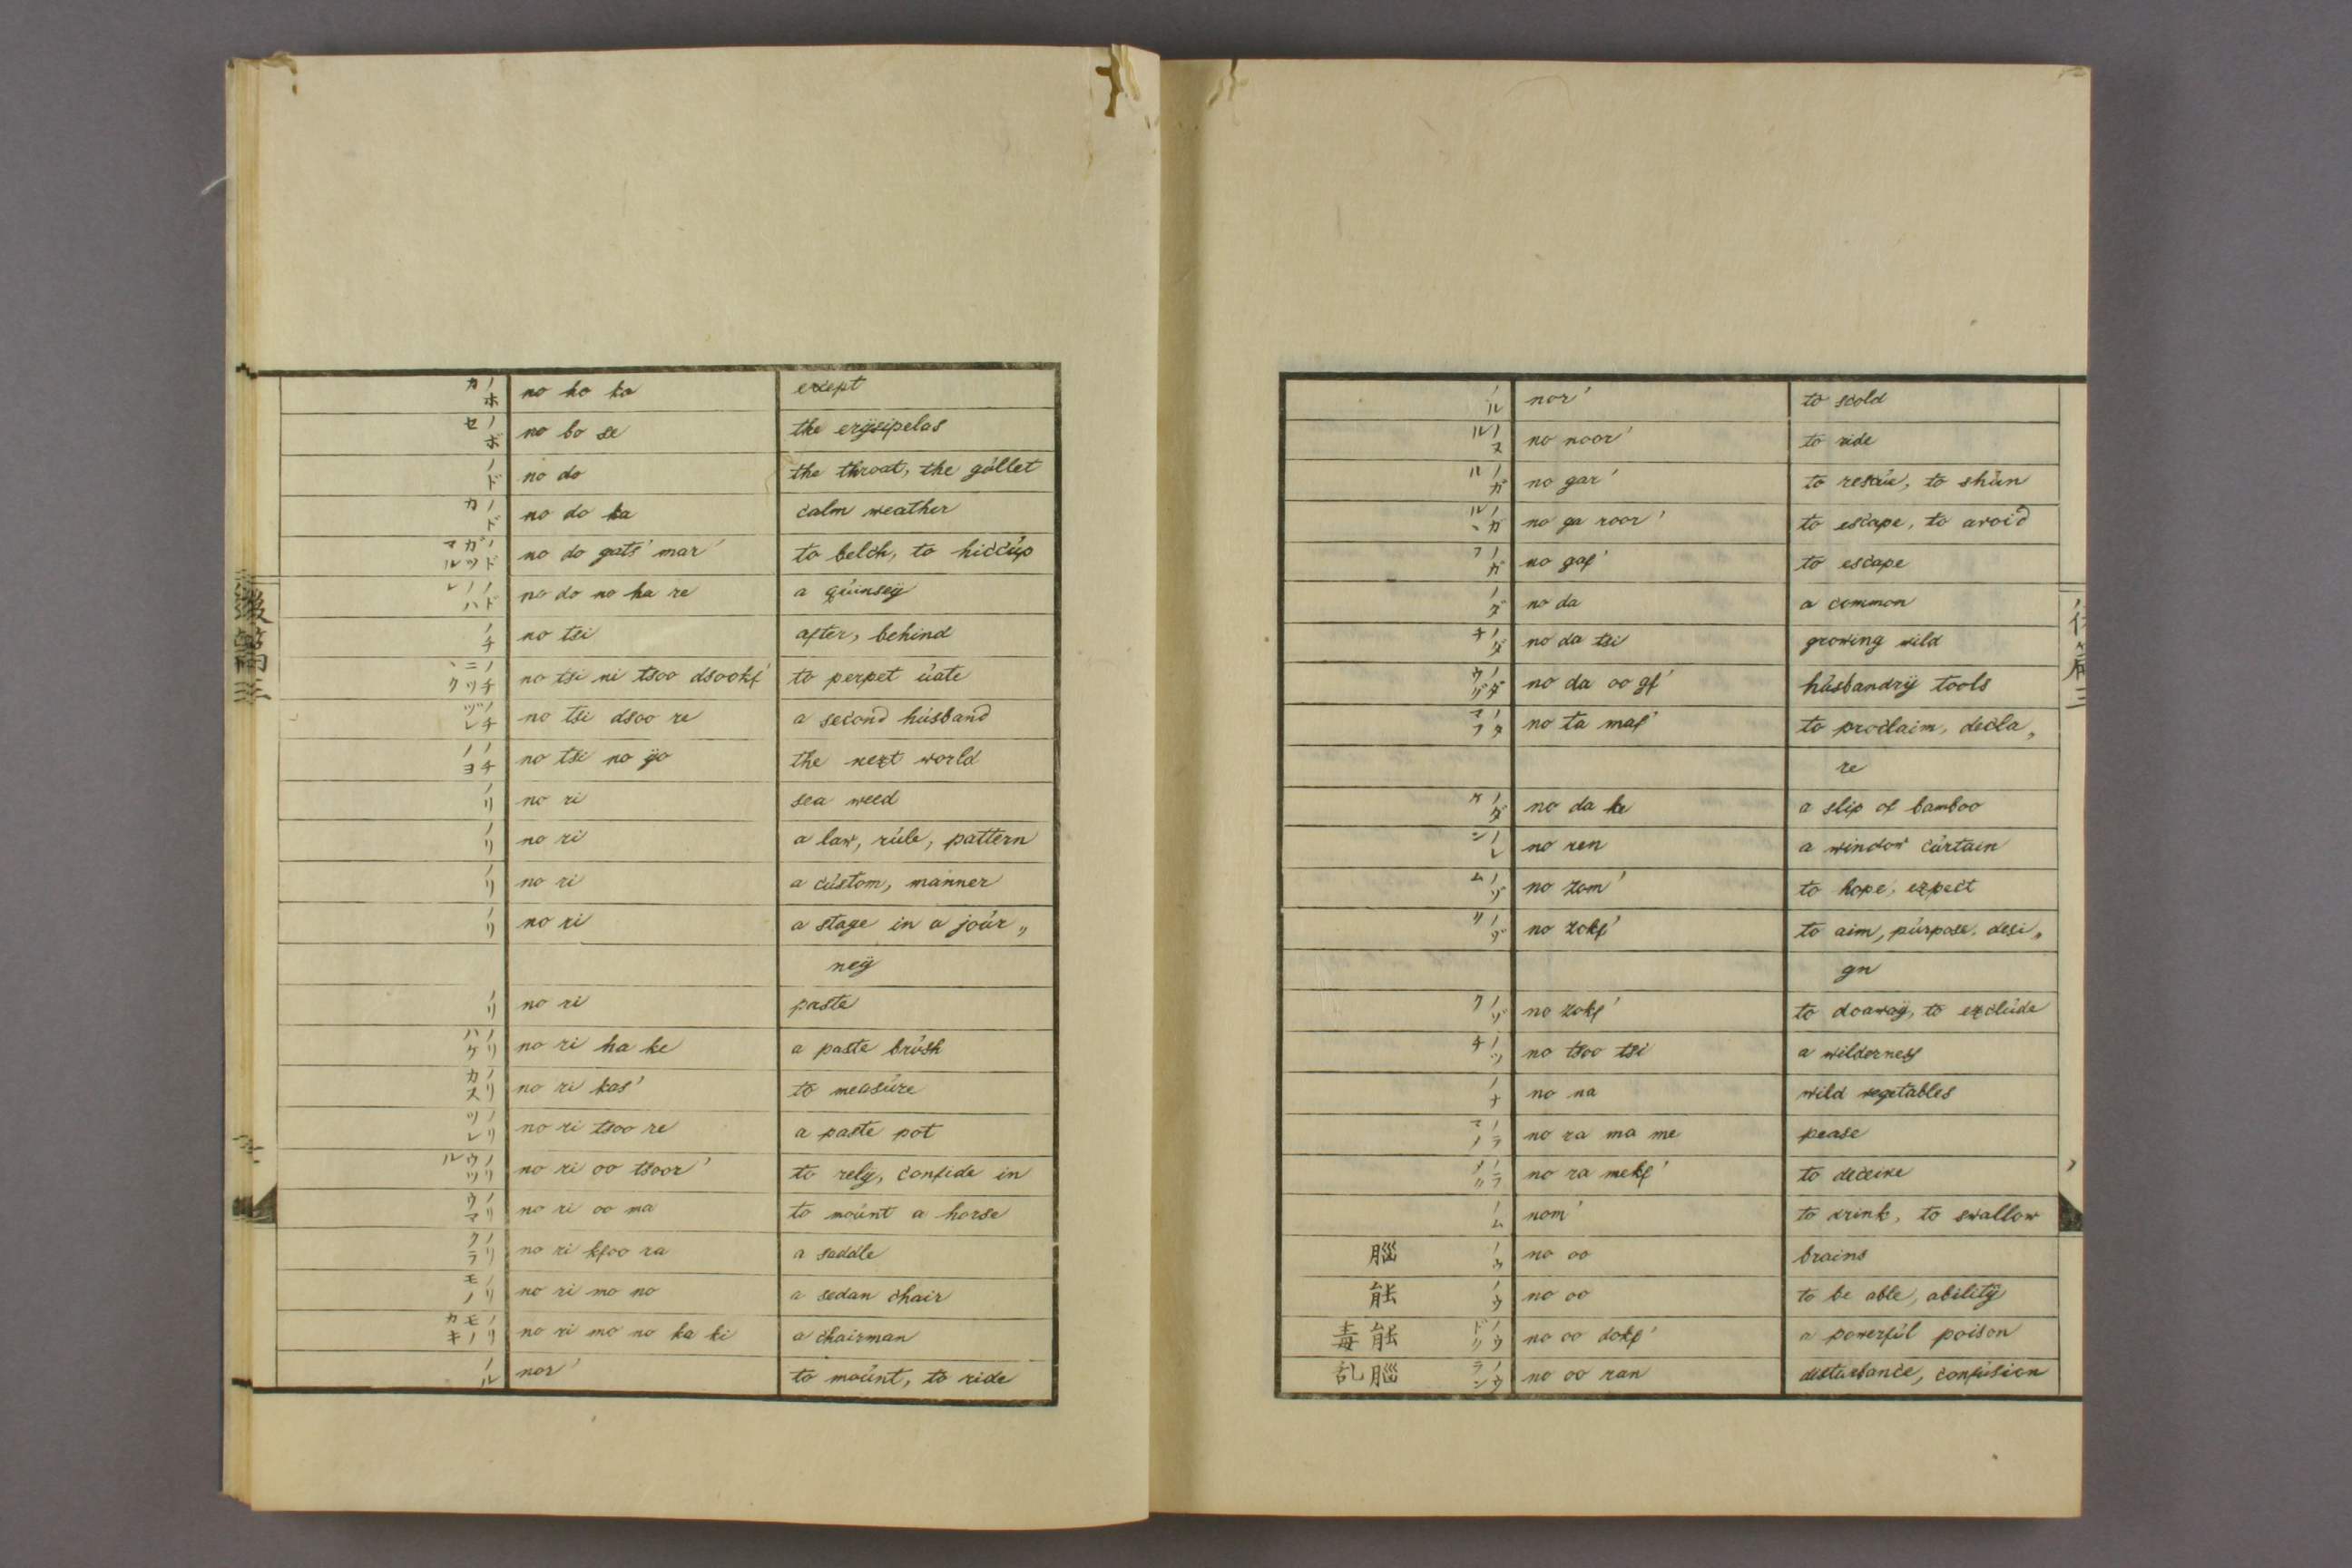 ノホカ no ho ka except
ノボセ no bo se the erÿsipelas
ノド no do the throat, the gúllet
ノドカ no do ka calm weather
ノドガツマル no do gats' mar' to belch, to hiccúp
ノドノハレ no do no ha re a qúinseÿ
ノチ no tsi after, behind
ノチニツヽク no tsi ni tsoo dsookf' to perpet úate
ノチヅレ no tsi dsoo re a second húsband
ノチノヨ no tsi no ÿo the next world
ノリ no ri sea weed
ノリ no ri a law, rúle, pattern
ノリ no ri a cústom, manner
ノリ no ri a stage in a joúr„
neÿ
ノリ no ri paste
ノリハケ no ri ha ke a paste brúsh
ノリカス no ri kas' to measúre
ノリツレ no ri tsoo re a paste pot
ノリウツル no ri oo tsoor' to relÿ, confide in
ノリウマ no ri oo ma to moúnt a horse
ノリクラ no ri kfoo ra a saddle
ノリモノ no ri mo no a sedan chair
ノリモノカキ no ri mo no ka ki a chairman
ノル nor' to moúnt, to ride
ノル nor' to scold
ノヌル no noor' to ride
ノガル no gar' to rescúe, to shún
ノガルヽ no ga roor' to escape, to avoid
ノガフ no gaf' to escape
ノダ no da a common
ノダチ no da tsi growing wild
ノダウグ no da oo gf' húsbandrÿ tools
ノタマフ no ta maf' to proclaim, decla„
re
ノダケ no da ke a slip of bamboo
ノレン no ren a window cúrtain
ノゾム no zom' to hope, expect
no zokf' to aim, púrpose, desi„
gn
ノゾク no zokf' to doawaÿ, to exclúde
ノツチ no tsoo tsi a wilderness
ノナ no na wild vegetables
no ra ma me pease
no ra mekf' to deceive
ノム nom' to drink, to swallow
腦 ノウ no oo brains
能 ノウ no oo to be able, abilitÿ
能毒 no oo dokf' a powerfúl poison
腦乱 ノウラン no oo ran disturbance, confúsion